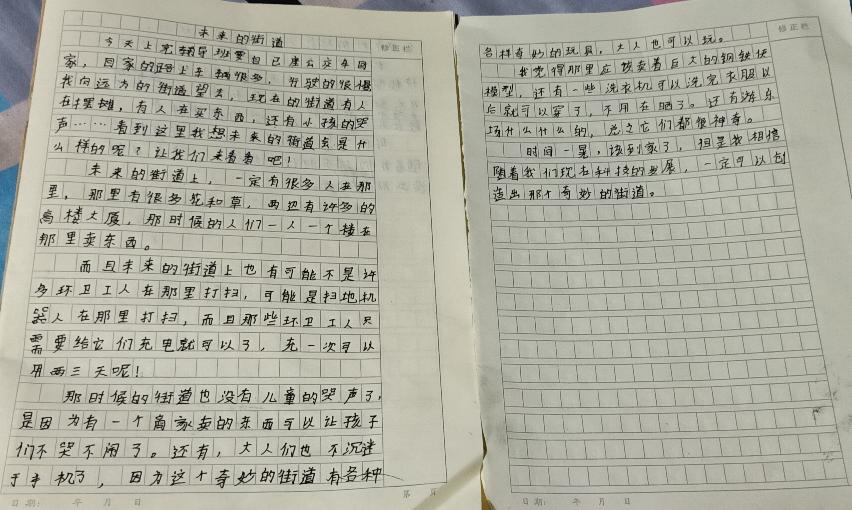 未来的街道
修正栏
今天上完辅导班要自己坐公交车回
家，回家的路上车辆很多，行驶的很慢
我向远方的街道望去，现在的街道有人
在摆摊，有人在买东西，还有小孩的哭
声……看到这里我想未来的街道究是什
么样的呢？让我们来看看吧！
未来的街道上，一定有很多人在那
里，那里有很多花和草，两边有许多的
高楼大厦，那时候的人们一人一个摊在
那里卖东西。
而且未来的街道上也有可能不是许
多环卫工人在那里打扫，可能是扫地机
器人在那里打扫，而且那些环卫工人只
需要给它们充电就可以了，充一次可以
用两三天呢！
那时候的街道也没有儿童的哭声了，
是因为有一个商家卖的东西可以让孩子
们不哭不闹了。还有，大人们也不沉迷
于手机了，因为这个奇妙的街道有各种
日期： 年 月 日
第 页
修正栏
各样奇妙的玩具，大人也可以玩。
我觉得那里应该卖着巨大的钢铁侠
模型，还有一些洗衣机可以洗完衣服以
后就可以穿了，不用在晒了。还有游乐
场什么什么的，总之它们都很神奇。
时间一晃，该到家了，但是我相信
随着我们现在科技的发展，一定可以创
造出那个奇妙的街道。
日期： 年 月 日